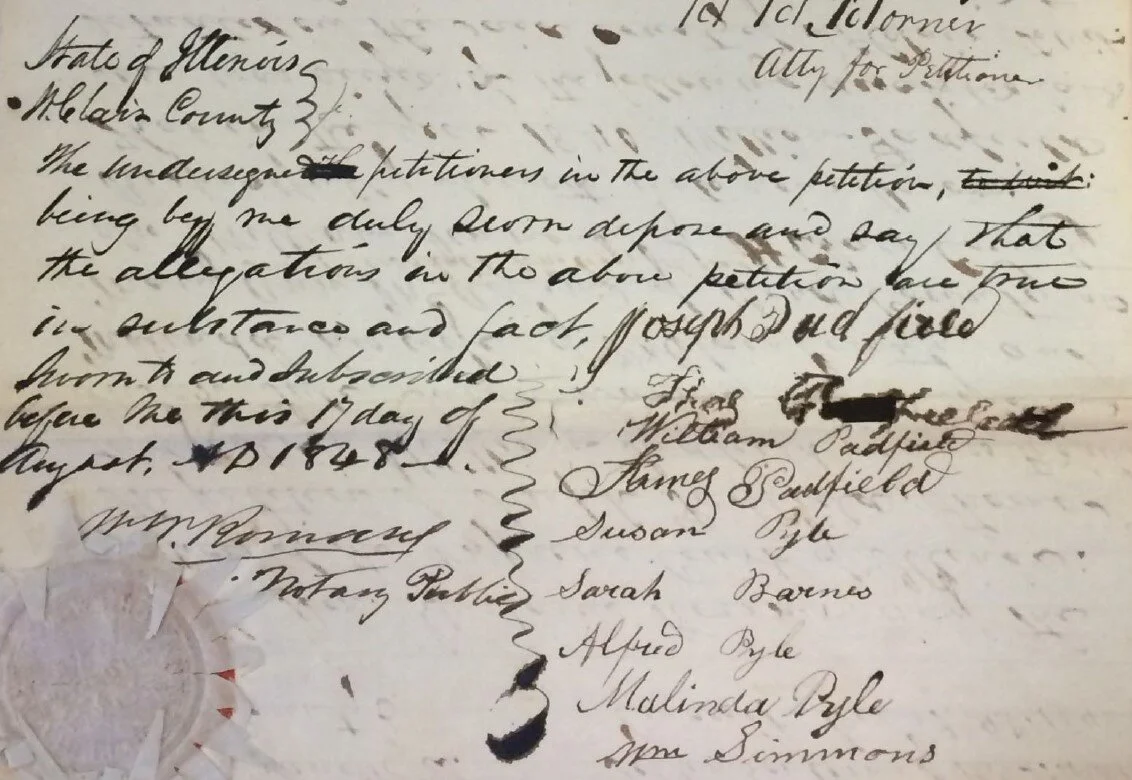 Atty for Petitioner
State of Illinois
St. Clair County
The undersigned petitioners in the above petition, to wit:
being by me duly sworn depose and say, that
the allegations in the above petition are true
in substance and fact,
Sworn to and Subscribed
before me this 17 day of
August, AD 1848
Notary Public
Joseph Dudfield
William Padfield
James Padfield
Susan Pyle
Sarah Barnes
Alfred Pyle
Malinda Pyle
Wm Simmons